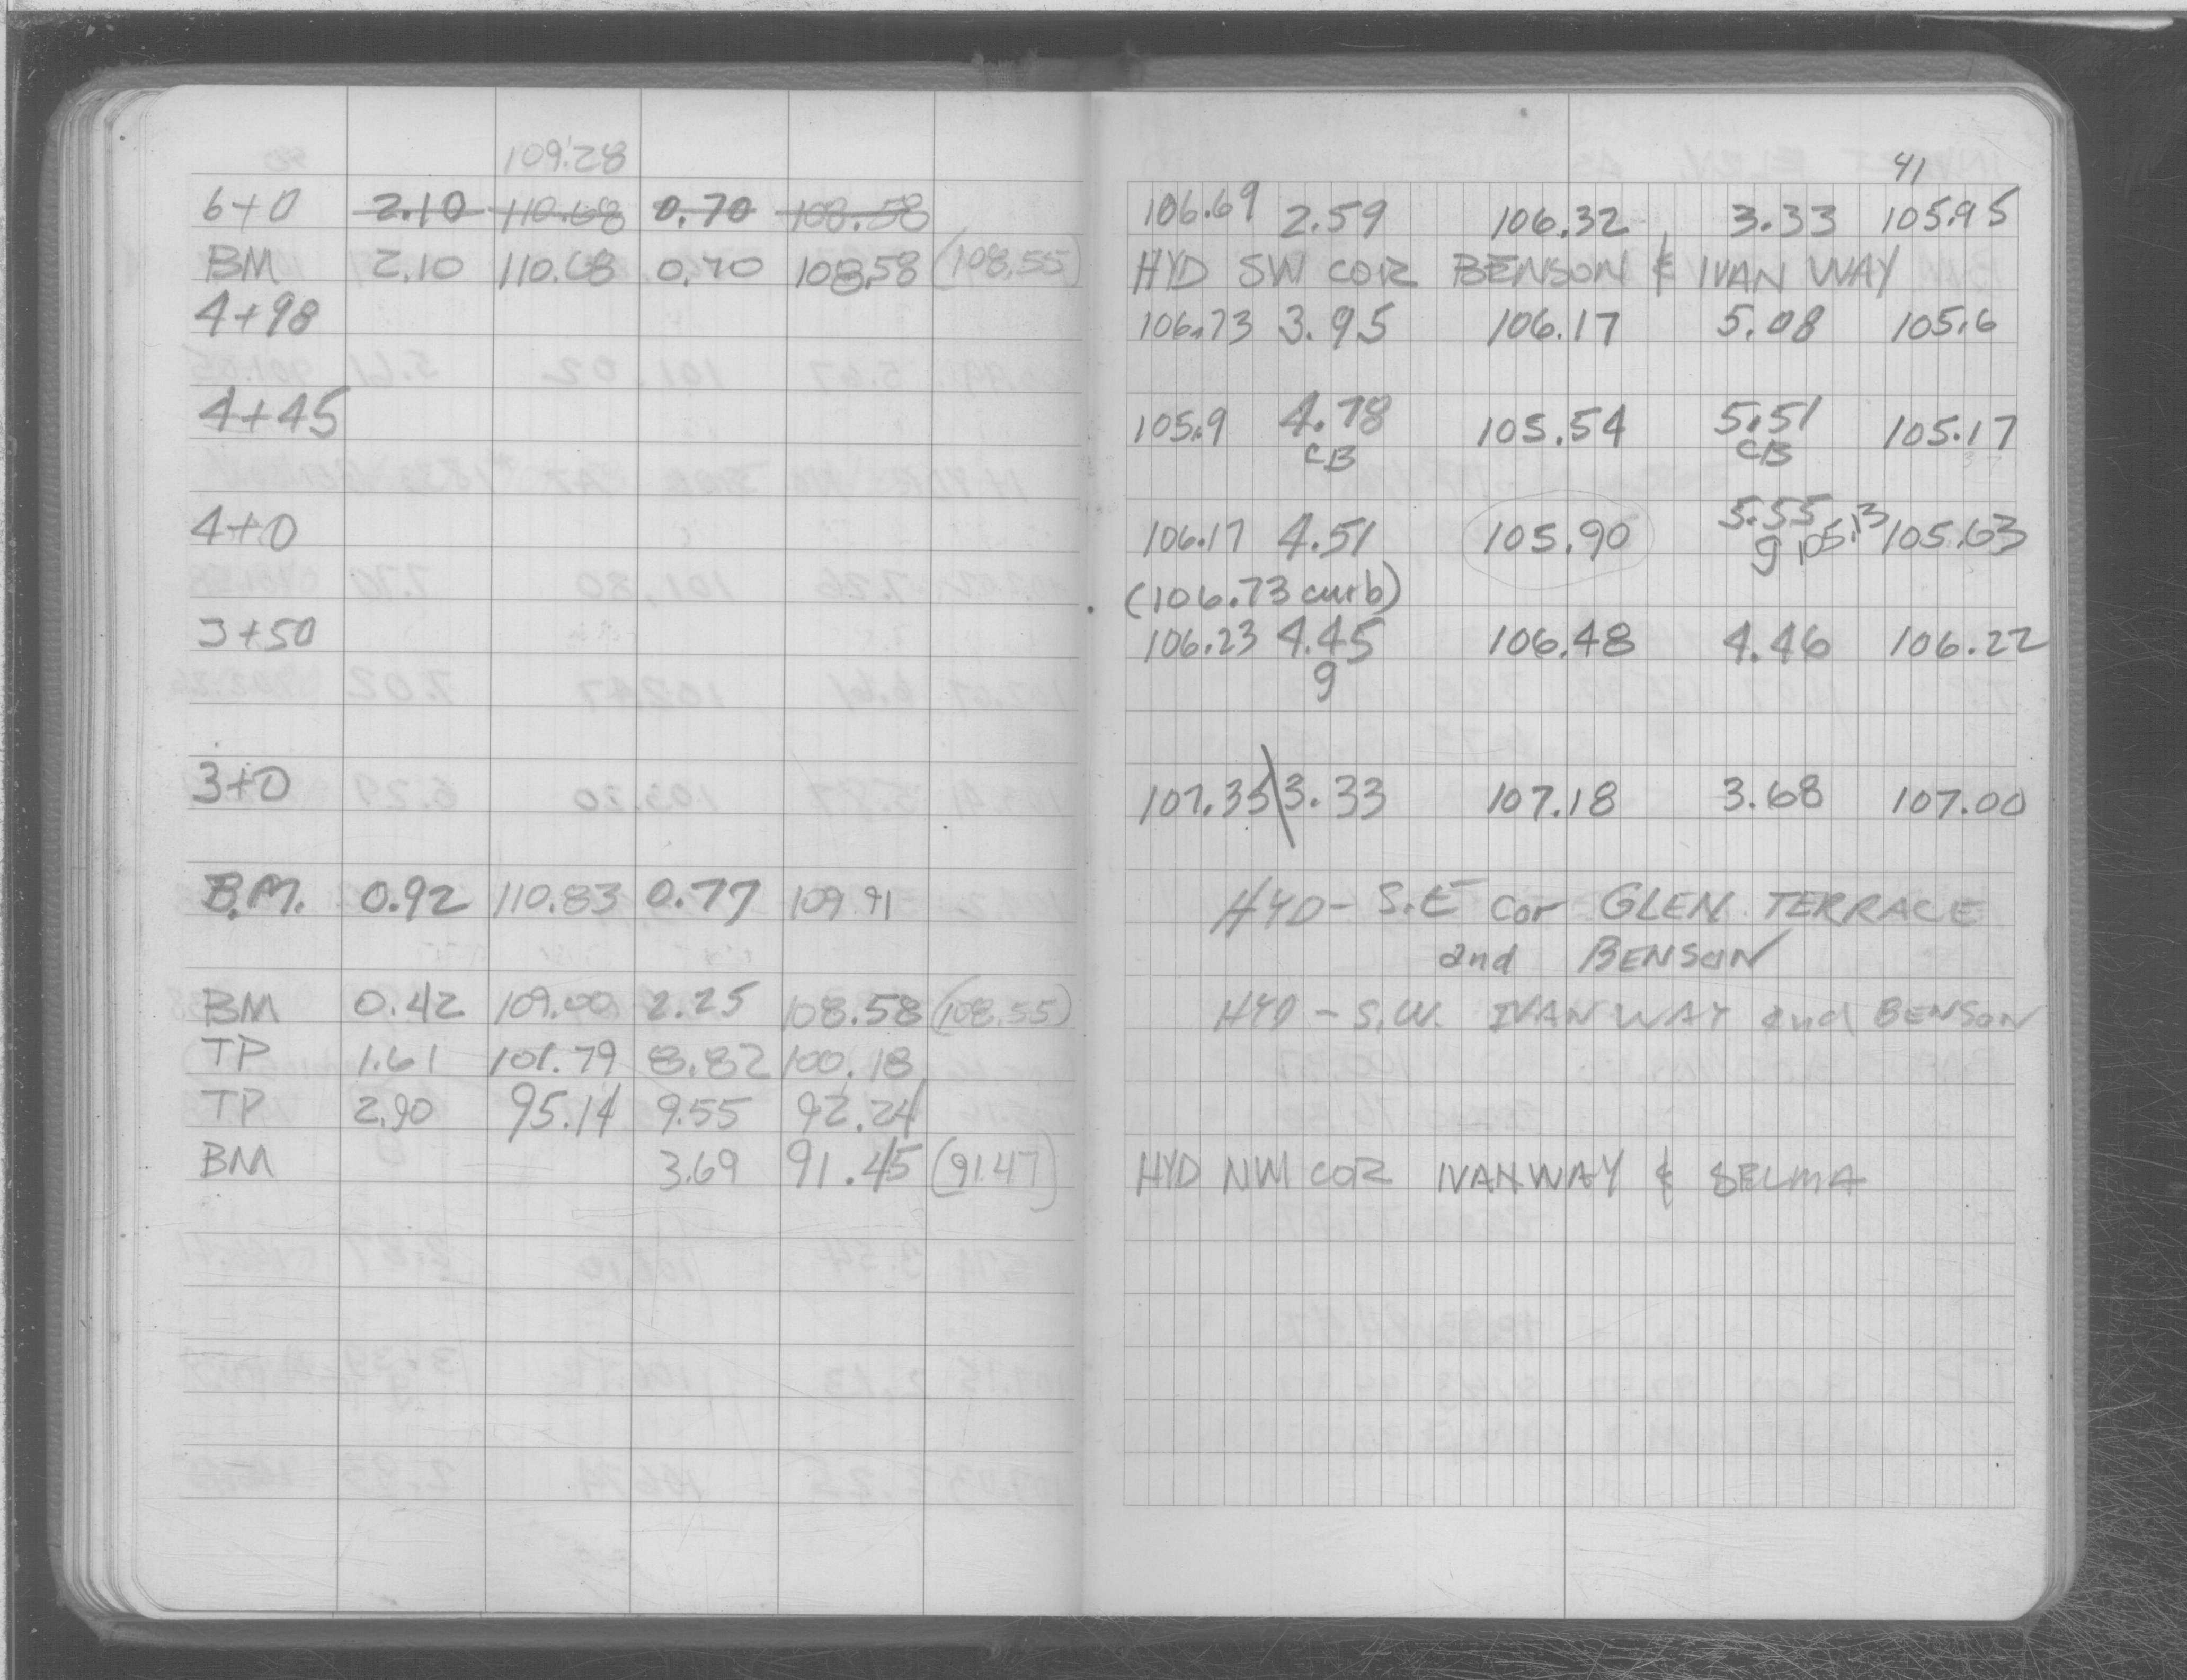 109.28
6+0 2.10 110.68 0.70 108.58
BM 2.10 110.68 0.70 108.58 (108.55)
4+98
4+45
4+0
3+50
3+0
B.M. 0.92 110.83 0.77 109.91
BM 0.42 109.00 2.25 108.58 (108.55)
TP 1.61 101.79 8.82 100.18
TP 2.90 95.14 9.55 92.24
BM 3.69 91.45 (91.47)
41
106.69 2.59 106.32 3.33 105.95
HYD SW COR BENSON & IVAN WAY
106.73 3.95 106.17 5.08 105.6
105.9 4.78 105.54 5.51 105.17
CB CB
106.17 4.51 105.90 5.55 105.63
g 105.13
(106.73 curb)
106.23 4.45 106.48 4.46 106.22
g
107.35 3.33 107.18 3.68 107.00
HYD - S.E cor GLEN TERRACE
and BENSON
HYD - S.W. IVAN WAY and BENSON
HYD NW COR IVAN WAY & SELMA